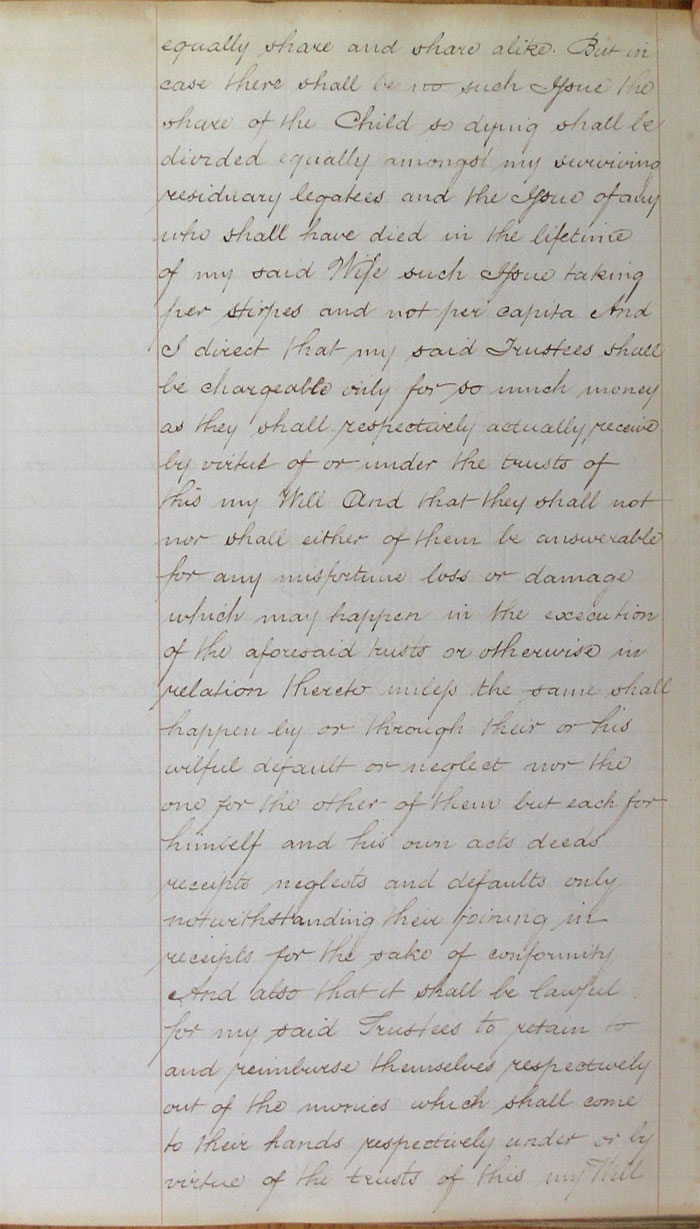 equally share and share alike. But in
case there shall be no such Issue the
share of the Child so dying shall be
divided equally amongst my surviving
residuary legatees and the Issue of any
who shall have died in the lifetime
of my said Wife such Issue taking
per stirpes and not per capita And
I direct that my said Trustees shall
be chargeable only for so much money
as they shall respectively actually receive
by virtue of or under the trusts of
this my Will And that they shall not
nor shall either of them be answerable
for any misfortune loss or damage
which may happen in the execution
of the aforesaid trusts or otherwise in
relation thereto unless the same shall
happen by or through their or his
wilful default or neglect nor the
one for the other of them but each for
himself and his own acts deeds
receipts neglects and defaults only
notwithstanding their joining in
receipts for the sake of conformity
And also that it shall be lawful
for my said Trustees to retain to
and reimburse themselves respectively
out of the monies which shall come
to their hands respectively under or by
virtue of the trusts of this my Will